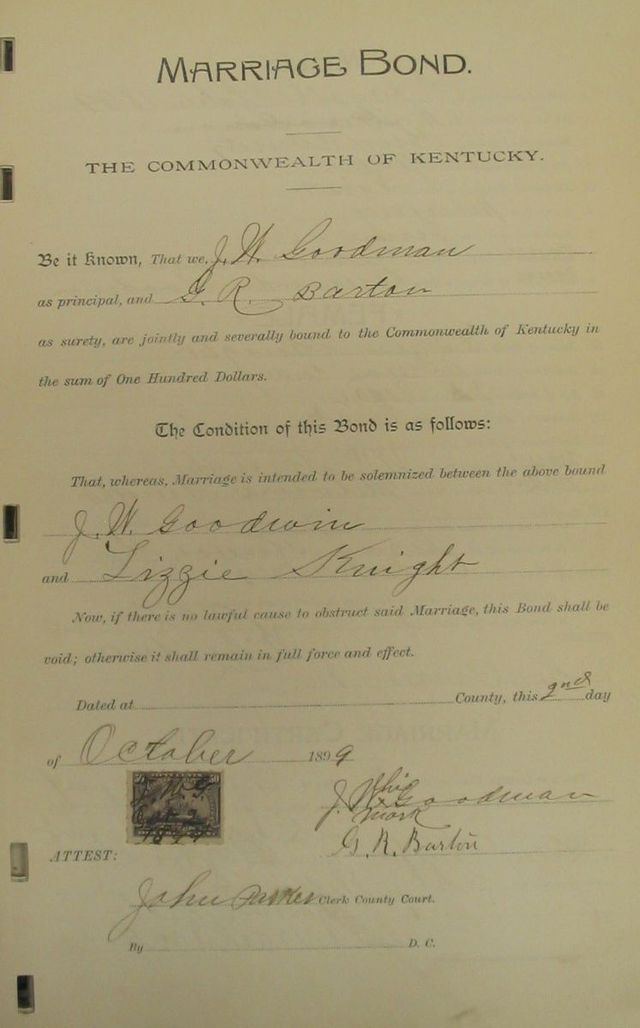 MARRIAGE BOND.
THE COMMONWEALTH OF KENTUCKY.
Be it Known, That we, J. W. Goodman
as principal, and G. R. Barton
as surety, are jointly and severally bound to the Commonwealth of Kentucky in
the sum of One Hundred Dollars.
The Condition of this Bond is as follows:
That, whereas, Marriage is intended to be solemnized between the above bound
J. W. Goodwin
and Lizzie Knight
Now, if there is no lawful cause to obstruct said Marriage, this Bond shall be
void; otherwise it shall remain in full force and effect.
Dated at County, this 2nd day
of October 1899
J. W. G.
Oct 2
1899
J. W. his x Goodman
mark
G. R. Barton
ATTEST:
John Parker Clerk County Court.
By D. C.